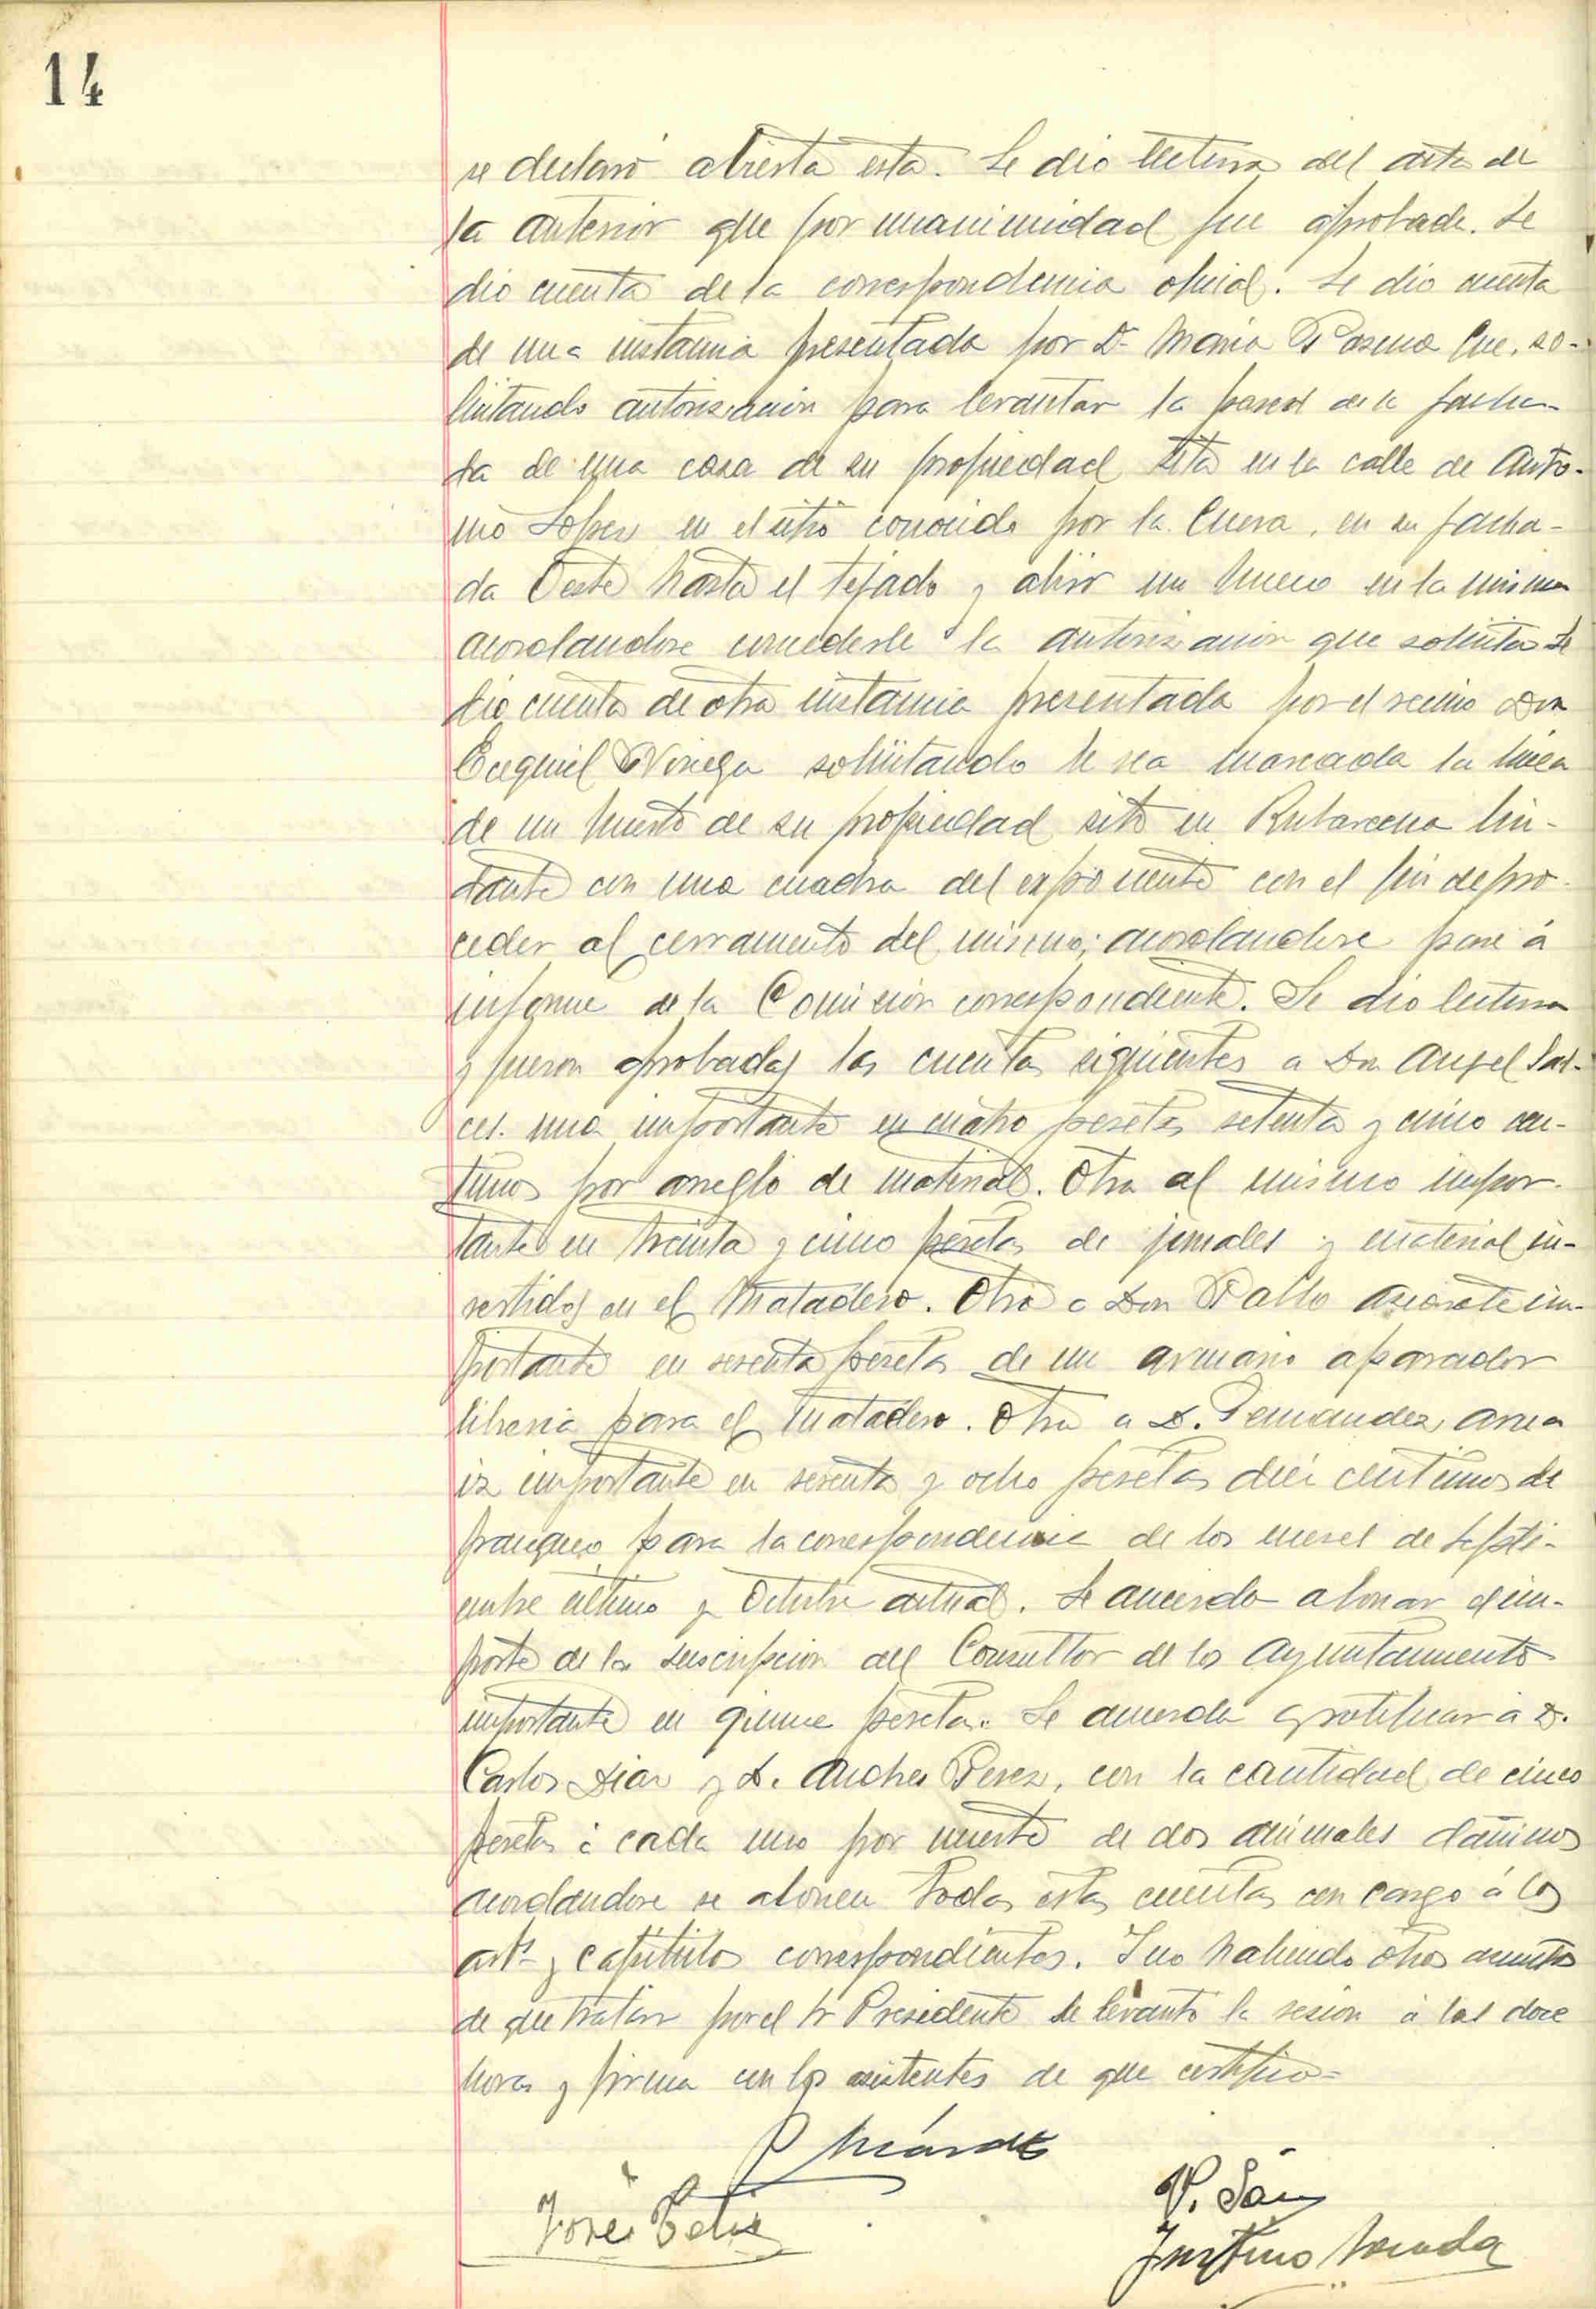 14
se declaró abierta esta. Se dio lectura del acta de
la anterior que por unanimidad fue aprobada. Se
dio cuenta de la correspondencia oficial. Se dio cuenta
de una instancia presentada por Dª Maria Cue, so-
licitando autorización para levantar la pared de la facha-
da de una casa de su propiedad sita en la calle de Anto-
nio Lopez en el sitio conocido por la Cueva, en su facha-
da Oeste hasta el tejado y abrir un hueco en la misma
acordandose concederle la autorizacion que solicita Se
dio cuenta de otra instancia presentada por el vecino Don
Ezequiel Noriega solicitando le sea marcada la linea
de un huerto de su propiedad sito en Rubarcena lin-
dante con una cuadra del exponente con el fin de pro-
ceder al cerramento del mismo; acordandose pase á
informe de la Comisión correspondiente. Se dio lectura
y fueron aprobadas las cuentas siguientes a Don Angel Sal-
ces. una importante en cuatro pesetas setenta y cinco cen-
timos por arreglo de material. Otra al mismo impor-
tante en treinta y cinco pesetas de jornales y material in-
vertidos en el Matadero. Otra a Don Pablo im-
portante en sesenta pesetas de un armario aparador
libreria para el Matadero. Otra a D. Fernandez
importante en sesenta y ocho pesetas diez centimos de
franqueo para la correspondencia de los meses de Septi-
embre ultimo y Octubre actual. Se acuerda abonar el im-
porte de la suscripcion del Consultor de los Ayuntamientos
importante en quince pesetas. Se acuerda gratificar á D.
Carlos Diaz y D. Andres Perez, con la cantidad de cinco
pesetas á cada uno por muerte de dos animales dañinos
acordandose se abonen todas estas cuentas con cargo á los
artˢ y capitulos correspondientes. Y no habiendo otros asuntos
de que tratar por el Sr Presidente se levantó la sesion á las doce
horas y firma con los asistentes de que certifico=
José
V.
Justino